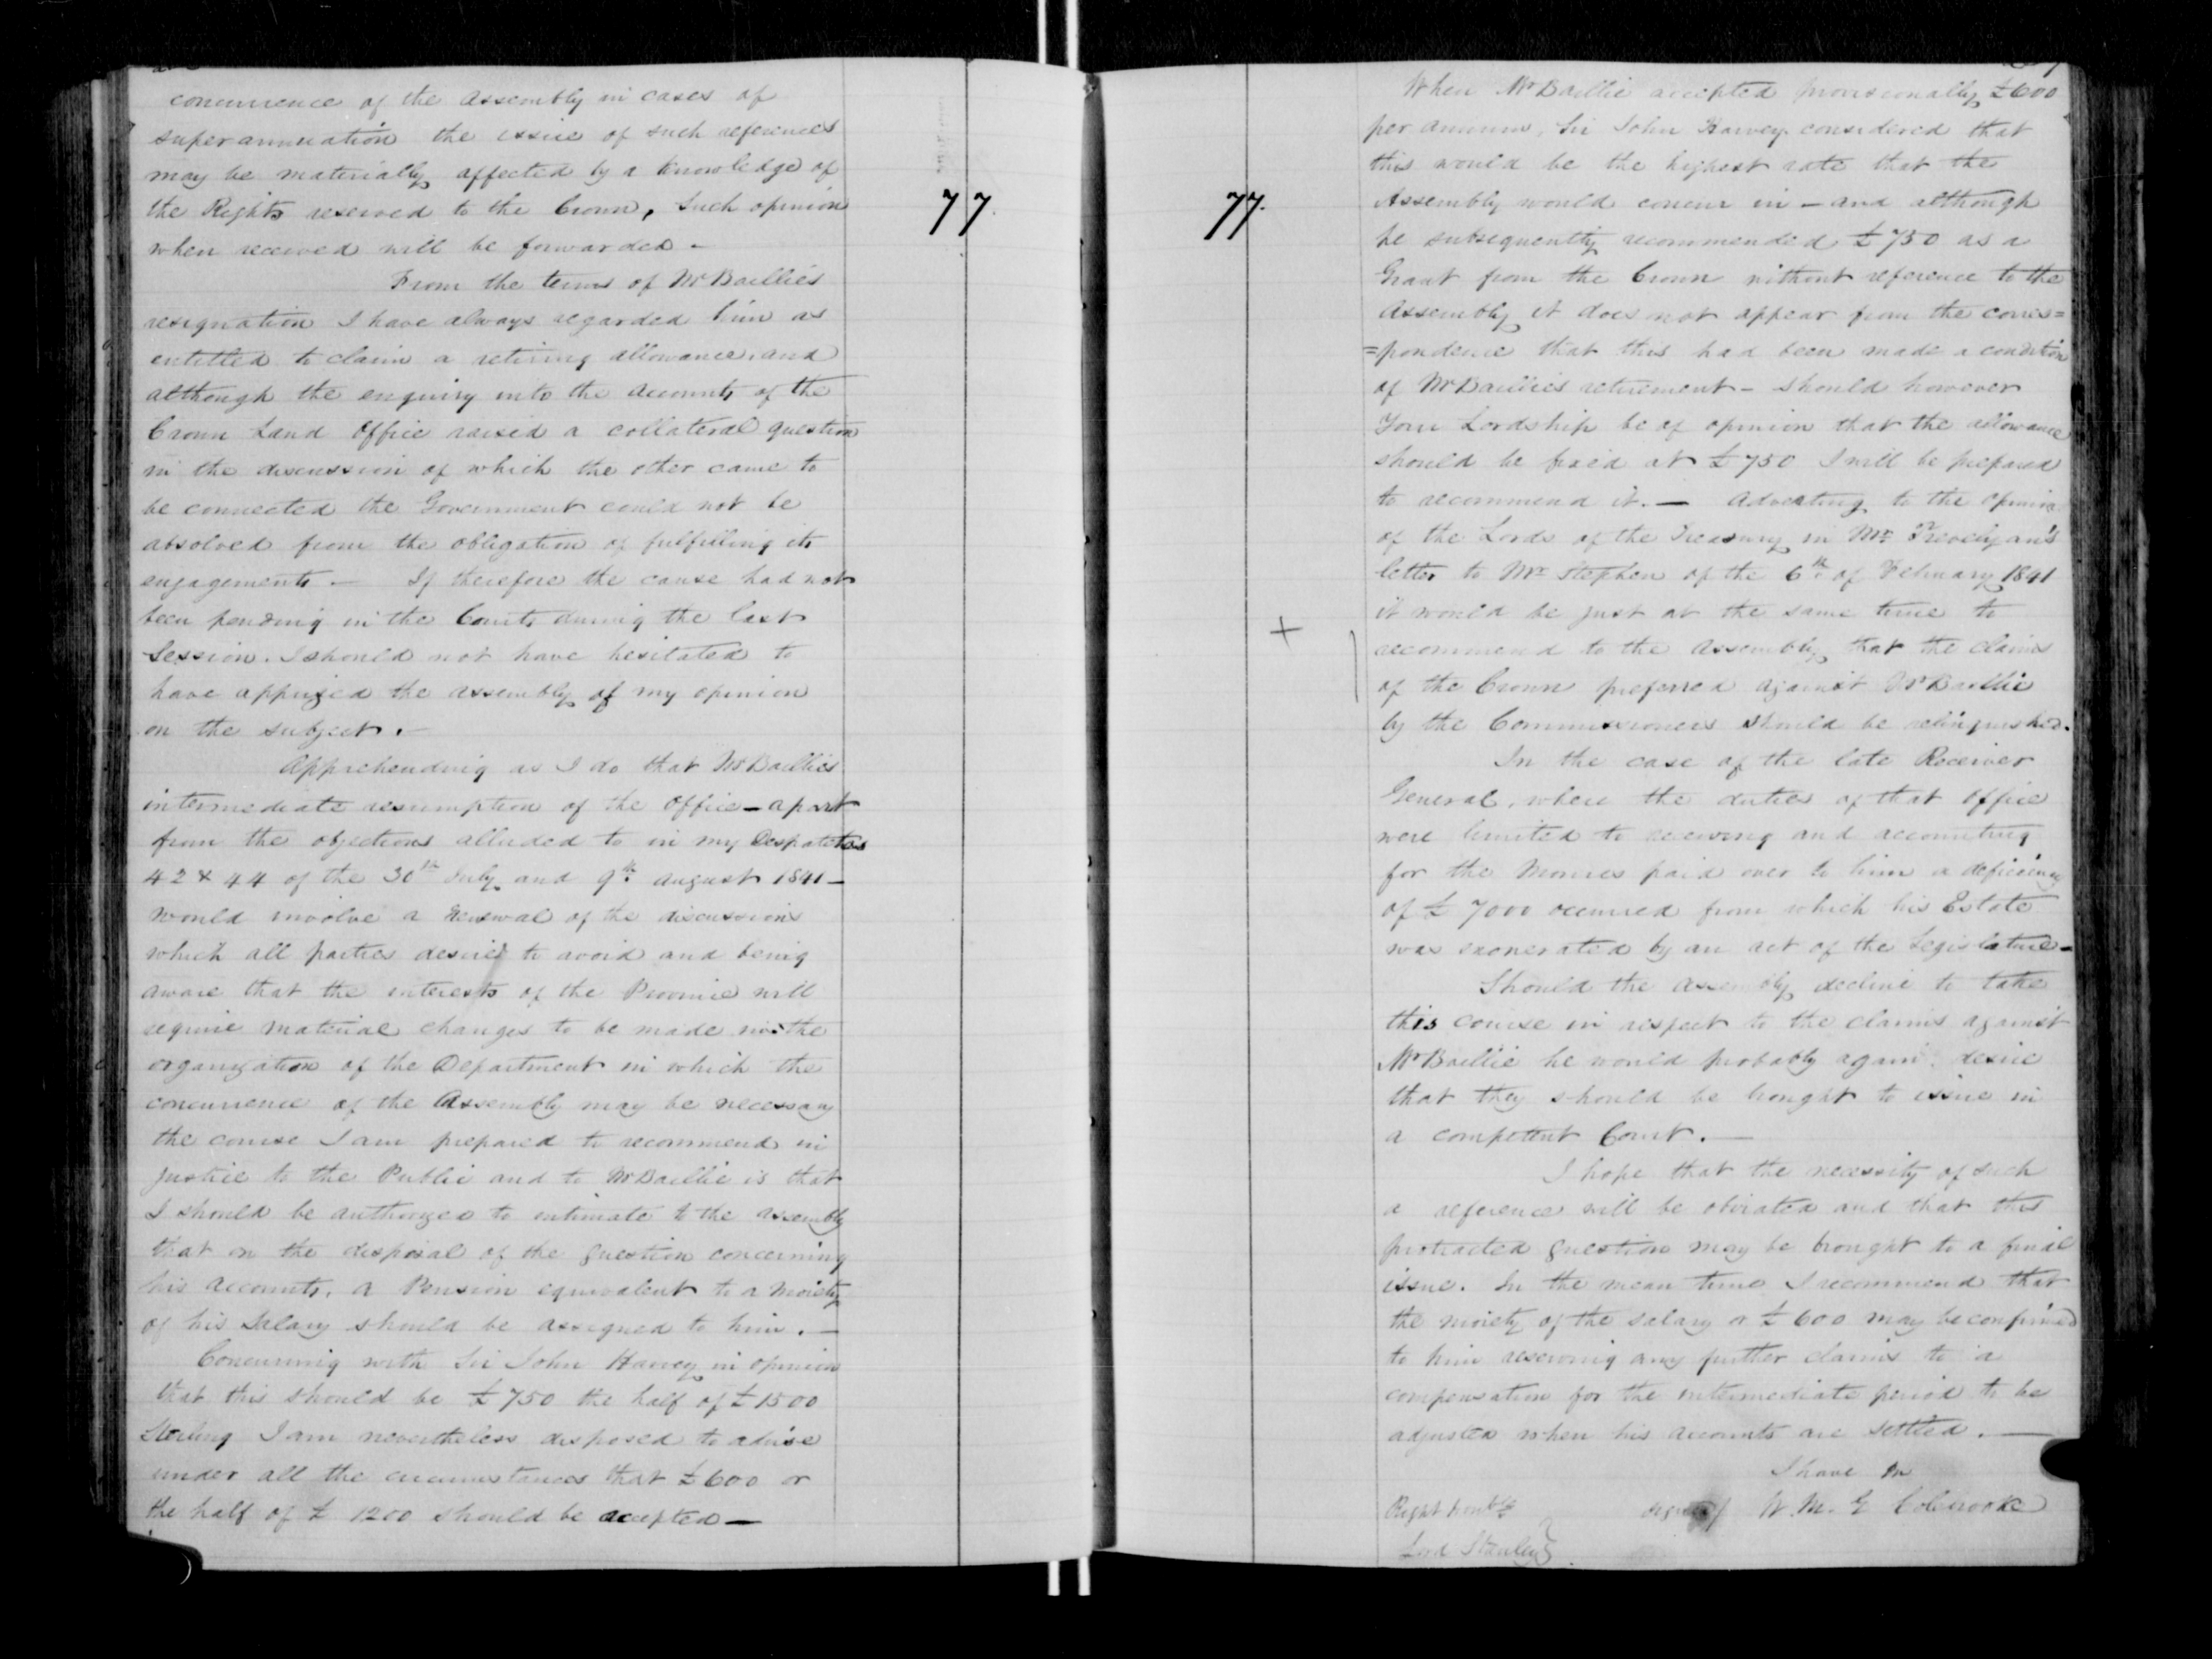 concurrence of the Assembly in cases of
superannuation the issue of such references
may be materially affected by a knowledge of
the Rights reserved to the Crown, Such opinion
when received will be forwarded -
From the terms of Mr Baillie's
resignation I have always regarded him as
entitled to claim a retiring allowance, and
although the enquiry into the accounts of the
Crown Land Office raised a collateral question
in the discussion of which the other came to
be connected the Government could not be
absolved from the obligation of fulfilling its
engagements. - If therefore the cause had not
been pending in the Courts during the last
Session. I should not have hesitated to
have apprized the assembly of my opinion
on the subject. -
Apprehending as I do that Mr Baillie's
intermediate resumption of the office - apart
from the objections alluded to in my Despatches
42 & 44 of the 30th July and 9th August 1841 -
would involve a renewal of the discussions
which all parties desire to avoid and being
aware that the interests of the Province will
require material changes to be made in the
organization of the Department in which the
concurrence of the Assembly may be necessary
the course I am prepared to recommend in
justice to the Public and to Mr Baillie is that
I should be authorized to intimate to the assembly
that on the disposal of the question concerning
his accounts, a Pension equivalent to a moiety
of his Salary should be assigned to him. -
Concurring with Sir John Harvey in opinion
that this should be £750 the half of £1500
Sterling I am nevertheless disposed to advise
under all the circumstances that £600 or
the half of £1200 should be accepted -
77.
77.
When Mr Baillie accepted provisionally £600
per annum, Sir John Harvey considered that
this would be the highest rate that the
Assembly would concur in - and although
he subsequently recommended £750 as a
Grant from the Crown without reference to the
Assembly it does not appear from the corres=
=pondence that this had been made a condition
of Mr Baillie's retirement - Should however
Your Lordship be of opinion that the allowance
should be fixed at £750 I will be prepared
to recommend it. - Adverting to the opinion
of the Lords of the Treasury in Mr. Trevelyan's
letter to Mr Stephen of the 6th of February 1841
it would be just at the same time to
+
recommend to the Assembly that the claims
of the Crown preferred against Mr Baillie
by the Commissioners should be relinquished.
In the case of the late Receiver
General, where the duties of that office
were limited to receiving and accounting
for the Monies paid over to him a deficiency
of £7000 occurred from which his Estate
was exonerated by an act of the Legislature -
Should the Assembly decline to take
this course in respect to the claims against
Mr Baillie he would probably again desire
that they should be brought to issue in
a competent Court. -
I hope that the necessity of such
a reference will be obviated and that this
protracted question may be brought to a final
issue. In the mean time I recommend that
the moiety of the salary a £600 may be confirmed
to him reserving any further claims to a
compensation for the intermediate period to be
adjusted when his accounts are settled. -
I have
Right Honble signed/ W. M. G Colebrooke
Lord Stanley